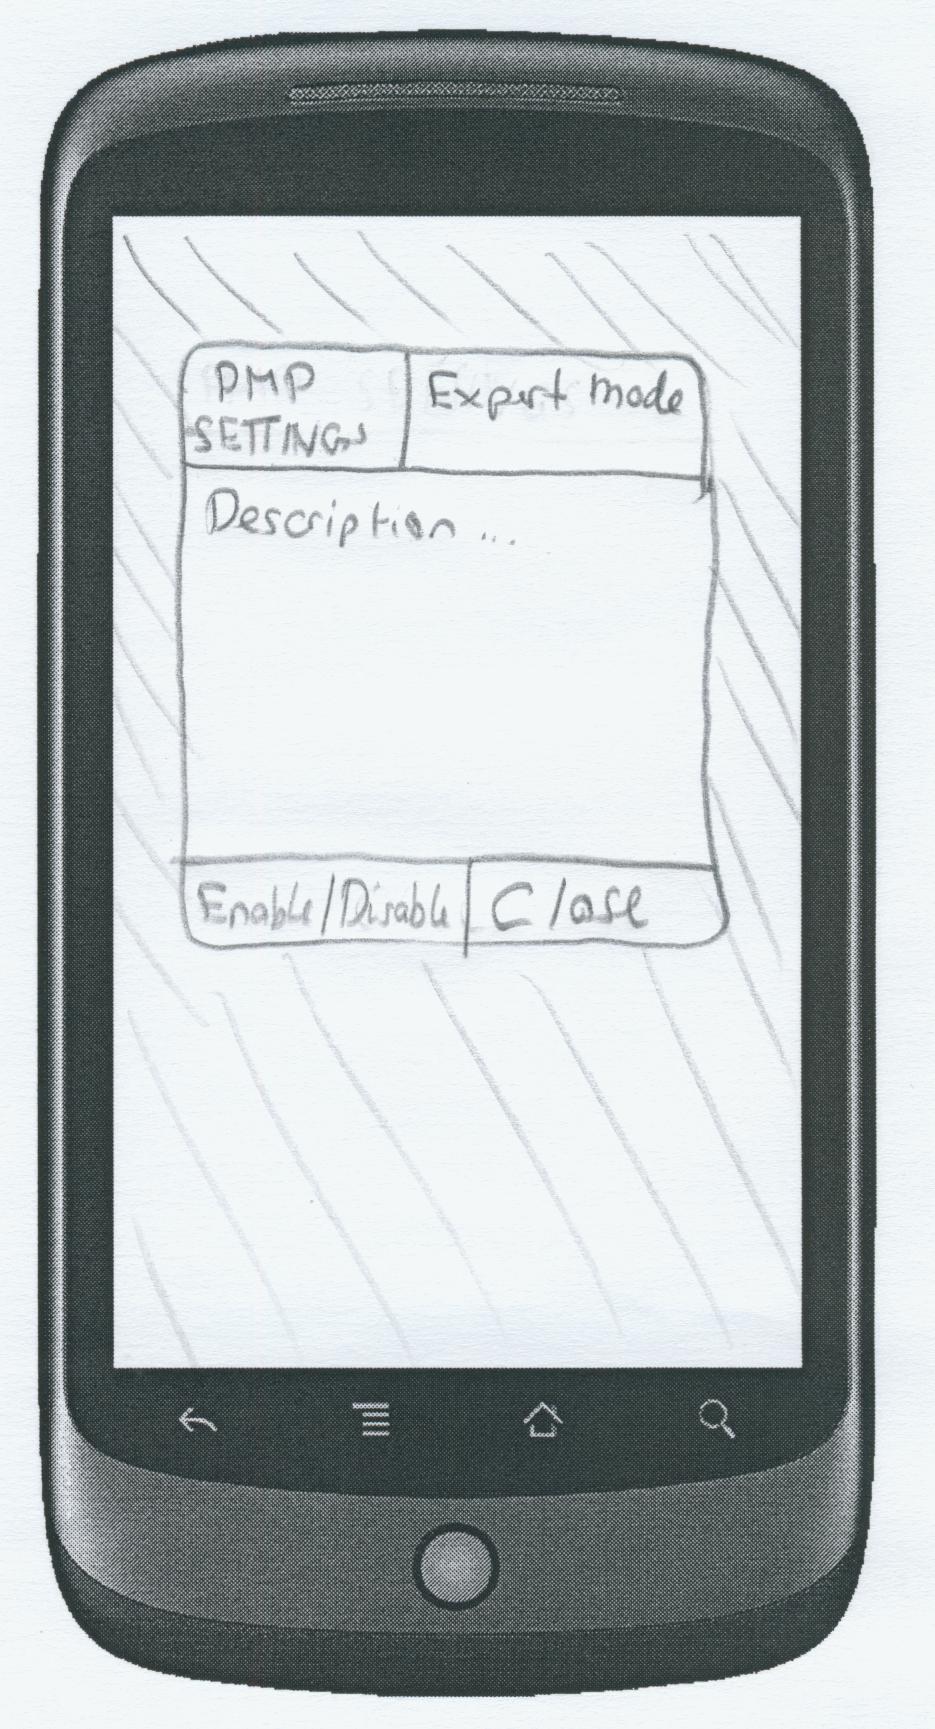 PMP
SETTINGS
Expert mode
Description ...
Enable/Disable
Close